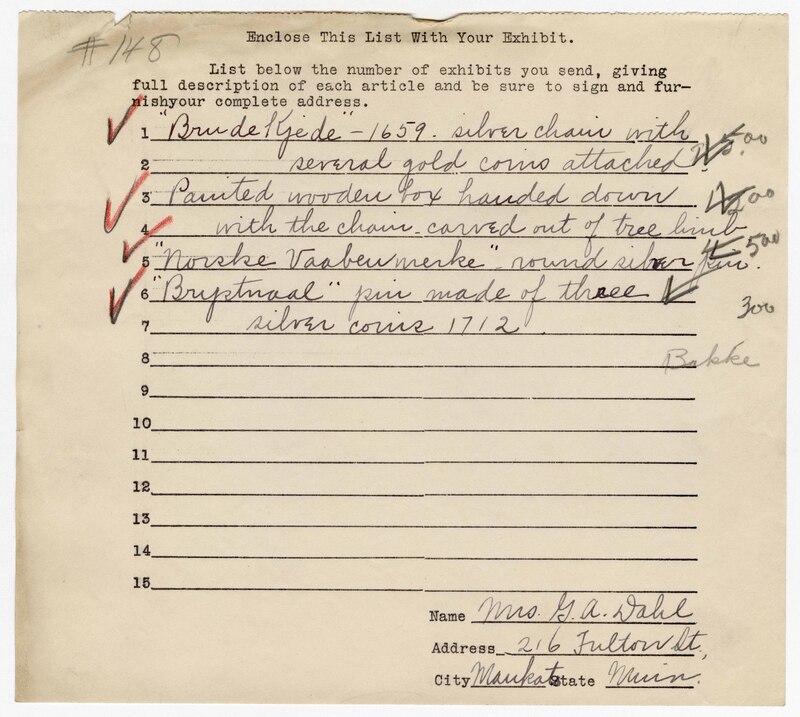 #148
Enclose This List With Your Exhibit.
List below the number of exhibits you send, giving
full description of each article and be sure to sign and fur-
nishyour complete address.
1 "Brude Kjede" - 1659. silver chain with
2 several gold coins attached
3 Painted wooden box handed down
4 with the chain - carved out of tree limb
5 "Norske Vaabenmerke" - round silver pin. 500
6 "Brystnaal" pin made of three 300
7 silver coins 1712.
8 Bakke
9
10
11
12
13
14
15
Name Mrs. G. A. Dahl
Address 216 Fulton St.,
City Mankato State Minn.